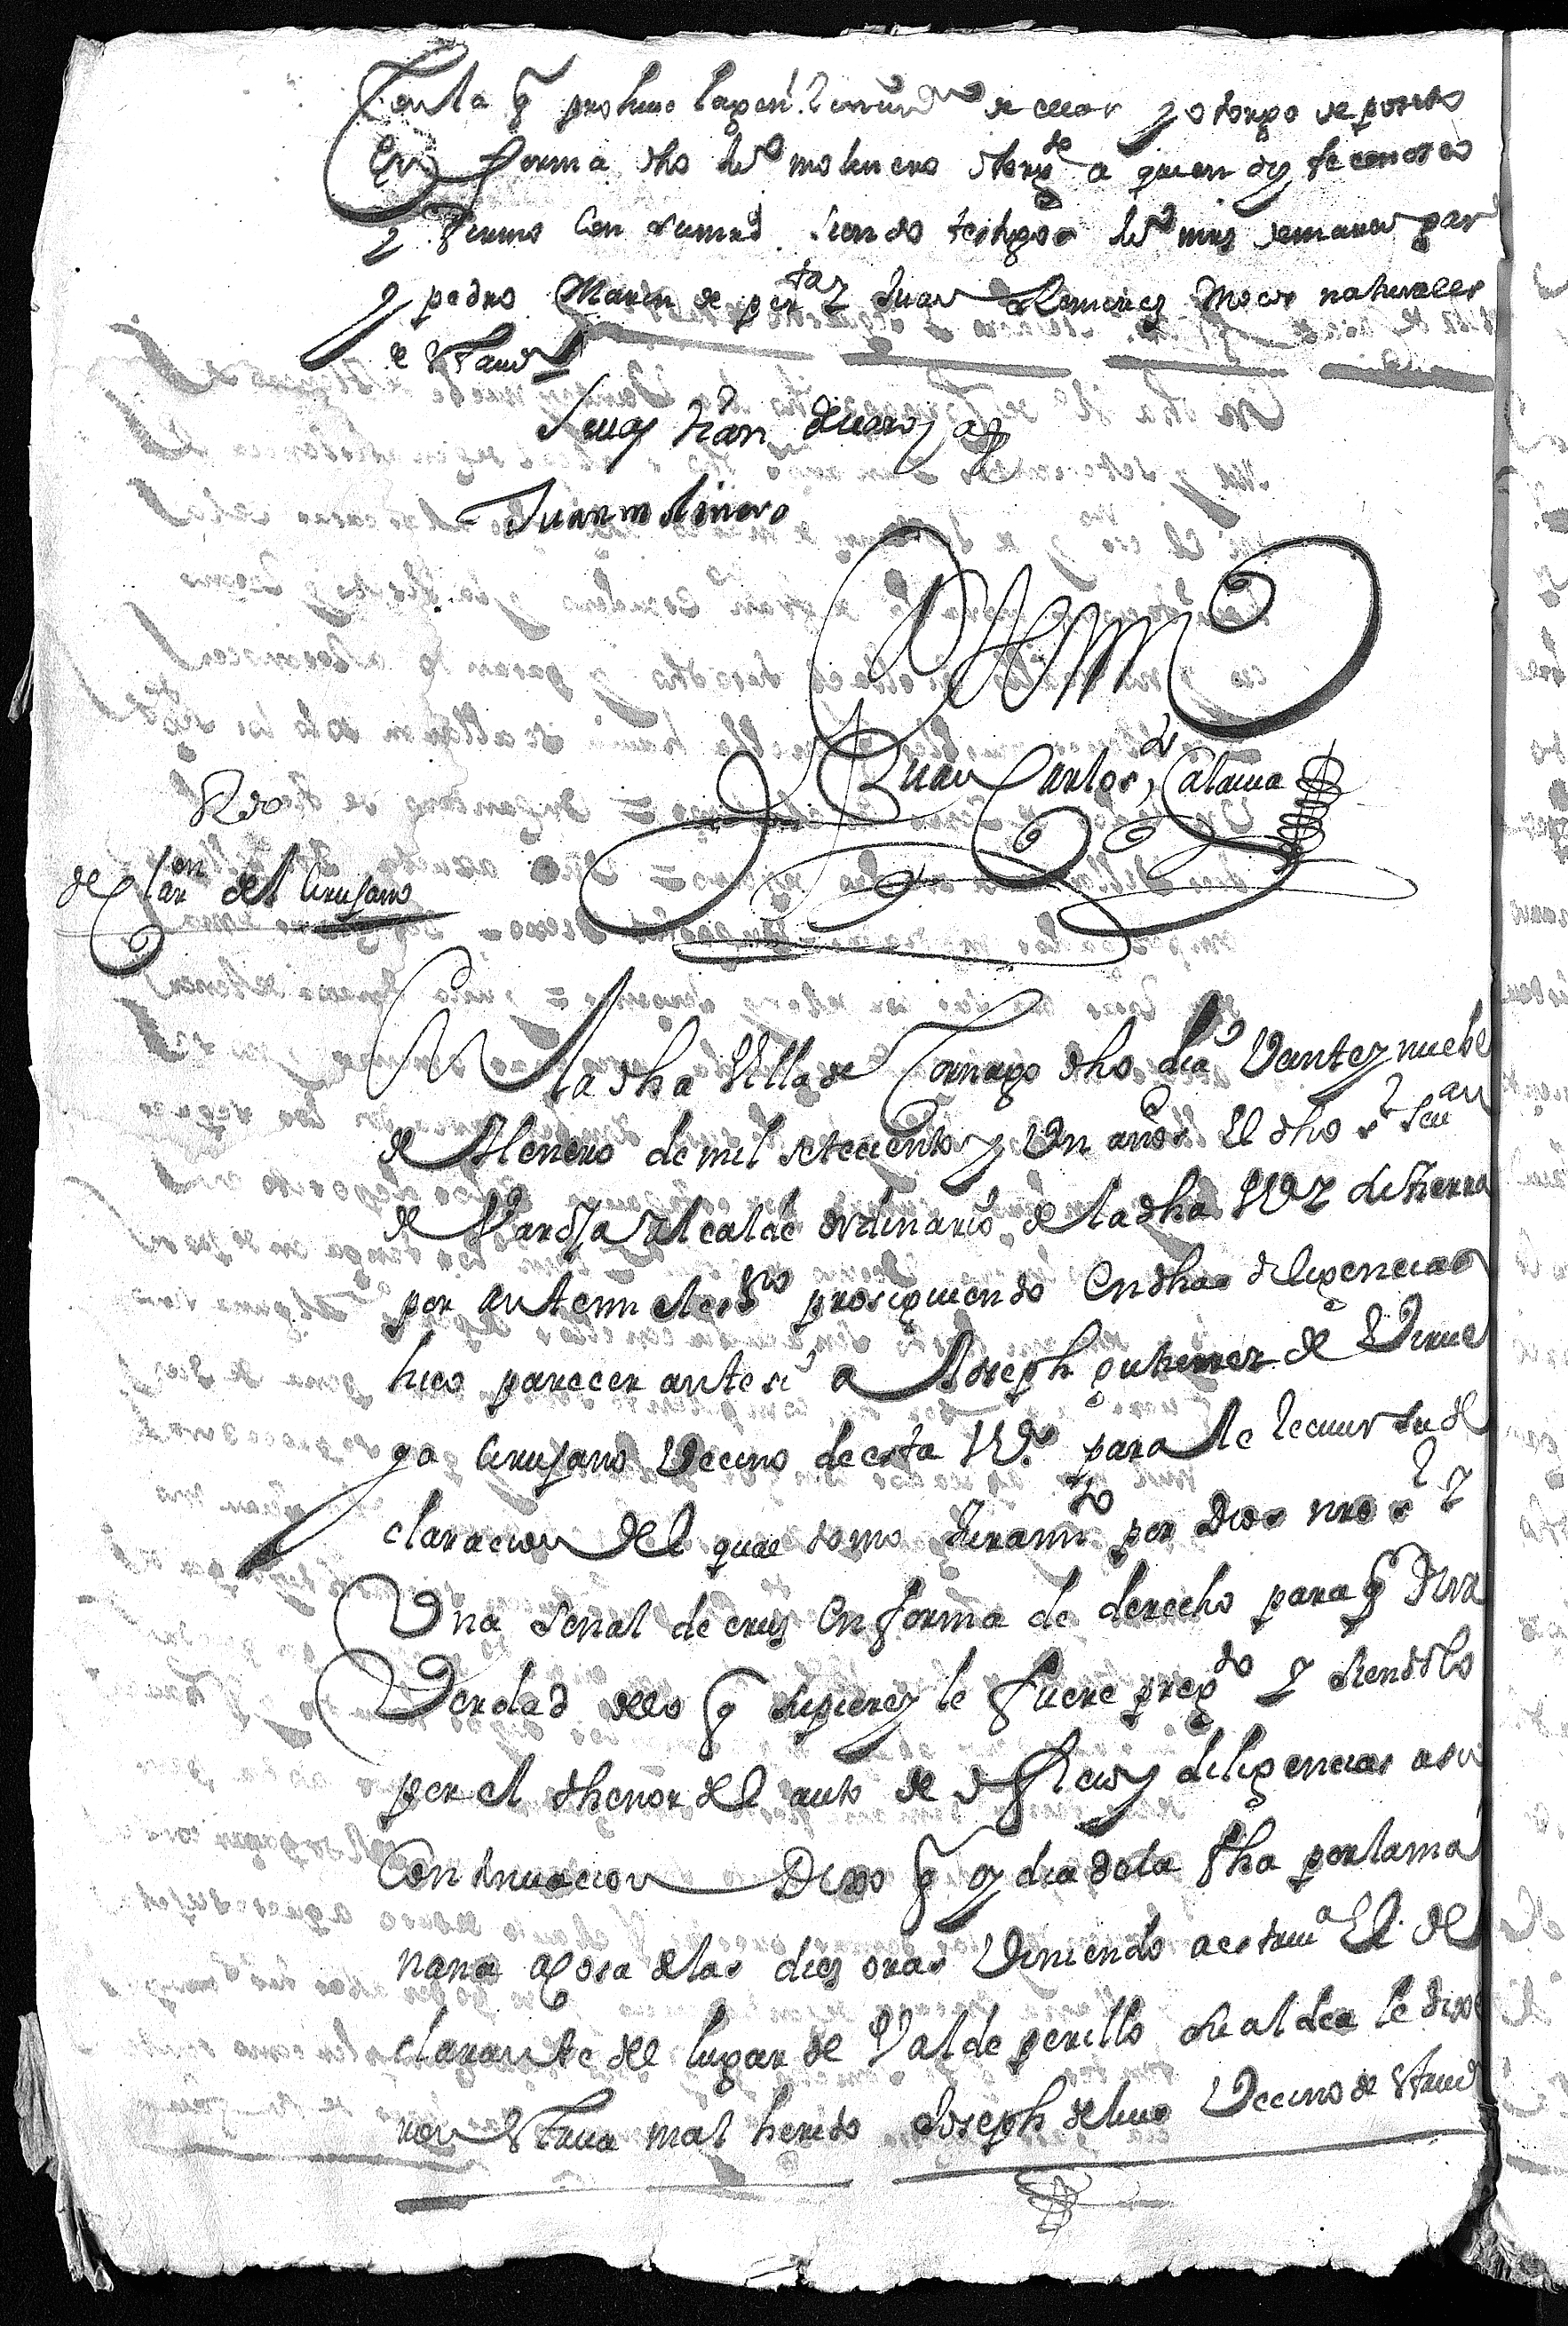 Con la q prohive la
En forma dho Juº molinero a quien doy fe conozco
y firmo con sumrd. siendo testigos
y pedro Marin de y Juan Ximenez Mozos naturales
de Sta
Juan molinero
Antemi
Juan Carlos de Calatiua
declaron del Cirujano
En la dha Villa de Cornago dho dia Veinte y nuebe
de Henero de mil setecientos y Un años El dho sr
de alcalde ordinario de la dha Va y de su tierra
por antemi el essno prosiguiendo En dhas diligencias
hico parecer ante si a Joseph gutierrez de Virue
ga Cirujano Vecino de esta Va. para le recivir su de
claracion del qual tomo Juramto por Dios nro sr y
Una señal de cruz En forma de derecho para q dira
Verdad dello q supiere y le fuere pregdo y siendolo
por el thenor del auto de oficio y diligencias a su
Continuacion Dixo q oy dia de la fha por la ma
ñana a cosa de las diez oras Viniendo a esta va El de
clarante del lugar de Valdeperillo su aldea le dixe
ron estava mal herido Joseph Vecino de esta va